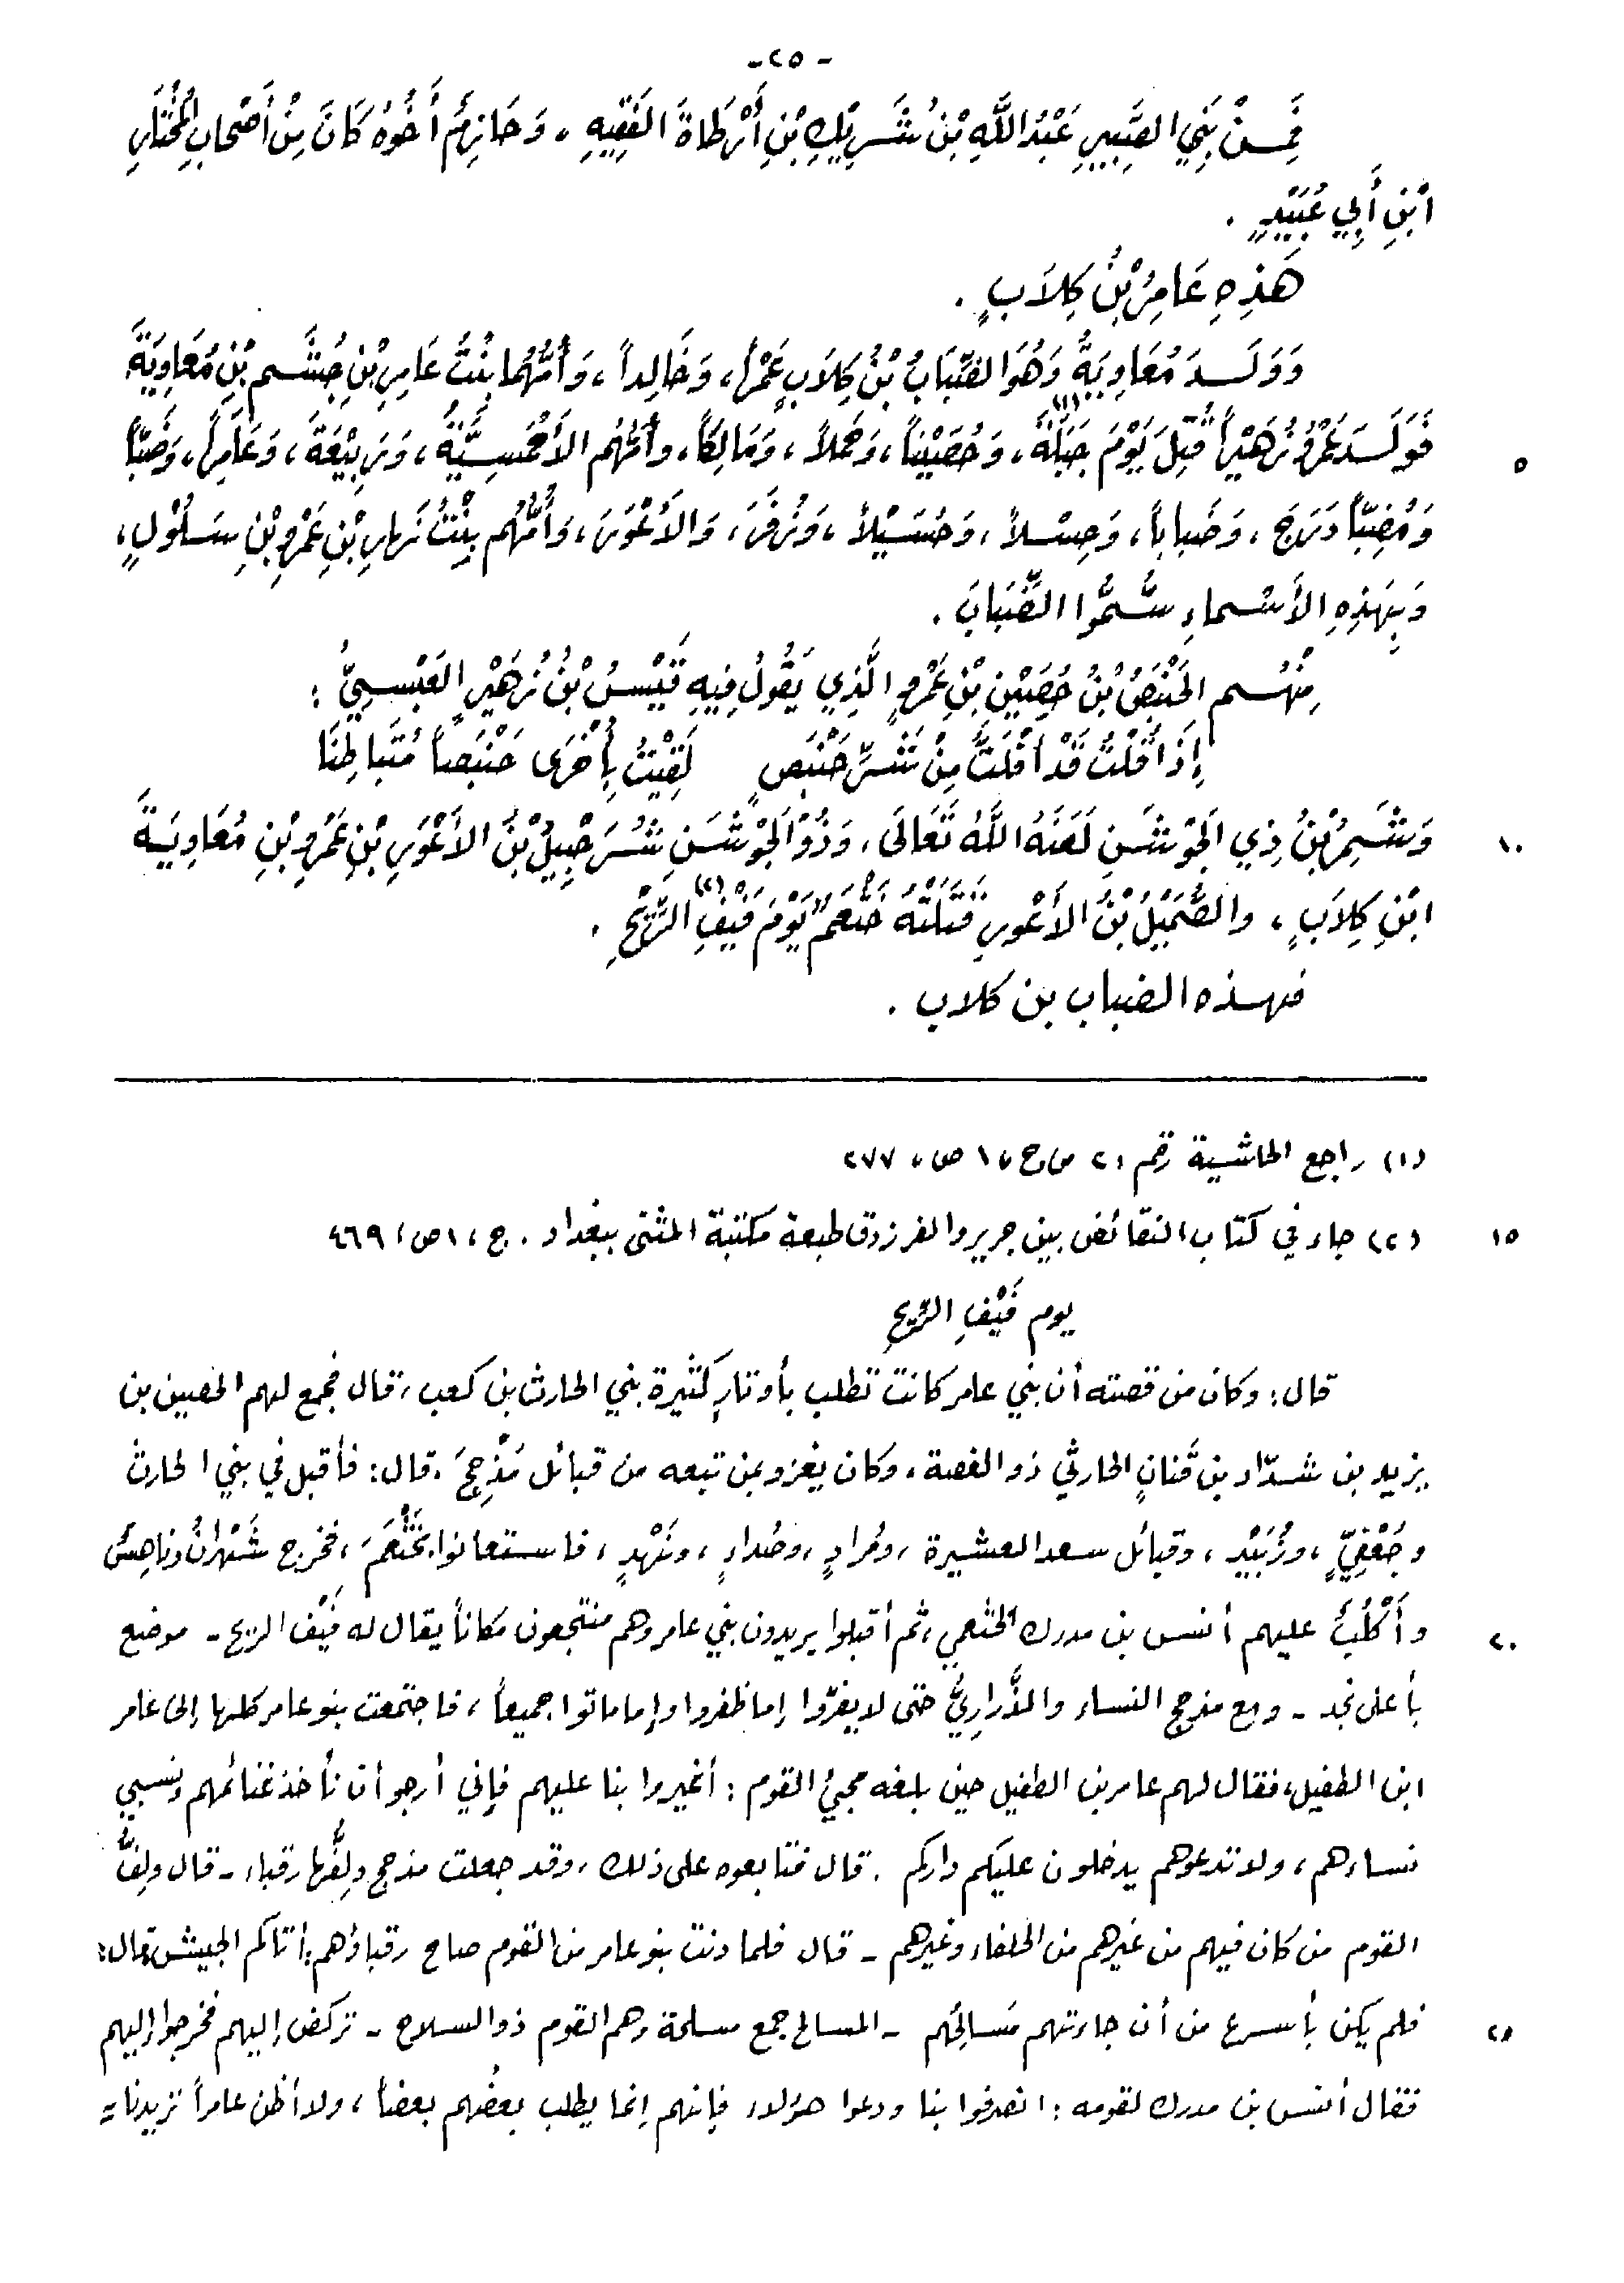 -٢٥-
فَمِنْ بَنِي الضَّبِيبِ عَبْدُ اللَّهِ بْنُ شَرِيْكِ بْنِ أَرْطَاةَ الفَقِيهِ، وَحَازِمٌ أَخُوهُ كَانَ مِنْ أَصْحَابِ المُخْتَارِ
ابْنِ أَبِي عُبَيْدٍ .
هَذِهِ عَامِرُ بْنُ كِلاَبٍ .
وَوَلَدَ مُعَاوِيَةُ وَهُوَ الضِّبَابُ بْنُ كِلاَبٍ عَمْراً، وَخَالِداً، وَأُمُّهُما بِنْتُ عَامِرِ بْنِ جُشَمِ بْنِ مُعَاوِيَةَ
فَوَلَدَ عَمْرٌو زُهَيْراً قُتِلَ يَوْمَ جَبَلَةَ(١)، وَحُصَيْناً، وَحَمَلاً، وَمَالِكاً، وأُمُّهُم الأَحْمَسِيَّةُ، وَرَبِيْعَةَ، وَعَامِراً، وَضَبّاً ٥
وَمُضِبّاً دَرَجَ، وَضَبَاباً، وَحِسْلاً، وَحُسَيْلاً، وَزُفَرَ، وَالأَعْوَرَ، وَأُمُّهُم بِنْتُ نَهَارِ بْنِ عَمْرِو بْنِ سَلُوْلٍ،
وَبِهَذِهِ الأَسْماءِ سُمُّوا الضِّبَابَ .
مِنْهُم الحَنْبَصُ بْنُ حُصَيْنِ بْنِ عَمْرٍو الَّذِي يَقُولُ فِيهِ قَيْسُ بْنُ زُهَيْرٍ العَبْسِيُّ :
إِذَا قُلْتُ قَدْ أَفْلَتُّ مِنْ شَرِّ حَنْبَصٍ لَقِيْتُ بِأُخْرَى حَنْبَصاً مُتَبَاطِنَا
وَشَمِرُ بْنُ ذِي الجَوْشَنِ لَعَنَهُ اللَّهُ تَعَالَى، وَذُو الجَوْشَنِ شُرَحْبِيلُ بْنُ الأَعْوَرِ بْنِ عَمْرِو بْنِ مُعَاوِيَةَ ١٠
ابْنِ كِلاَبٍ، والصُّمَيْلُ بْنُ الأَعْوَرِ قَتَلَتْهُ خَثْعَمُ يَوْمَ فَيْفِ(٢) الرِّيْحِ .
فهذه الضباب بن كلاب .
(١) راجع الحاشية رقم ٢ من ج ١، ص، ٢٧٧
(٢) جاء في كتاب النقائض بين جرير والفرزدق طبعة مكتبة المثنى ببغداد . ج، ١ ص، ٤٦٩ ١٥
يوم فَيْفِ الرِّيحِ
قال: وكان من قصته أن بني عامر كانت تطلب بأوتارٍ كثيرة بني الحارث بن كعب، قال فجمع لهم الحصين بن
يزيد بن شدّاد بن قَنانٍ الحارثي ذو الغصة، وكان يغزو بمن تبعه من قبائل مَذْحِجَ. قال: فأقبل في بني الحارث
وجُعْفِيٍّ، وزُبَيْد، وقبائل سعد العشيرة، ومُرادٍ، وصُداءٍ، ونَهْدٍ، فاستعانوا بخَثْعَمَ، فخرج شَهْرانُ وناهِسُ
وأَكْلُبُ عليهم أنس بن مدرك الخثعمي، ثم أقبلوا يريدون بني عامر وهم منتجعون مكاناً يقال له فَيْف الريح - موضع ٢٠
بأعلى نجد - ومع مذحج النساء والذَّرارِيُّ حتى لا يفرّوا إما ظفروا وإما ماتوا جميعاً، فاجتمعت بنو عامر كلها إلى عامر
ابن الطفيل، فقال لهم عامر بن الطفيل حين بلغه مجيءُ القوم : أغيروا بنا عليهم فإني أرجو أن نأخذ غنائمهم ونسبي
نساءهم، ولا تدعوهم يدخلون عليكم داركم . قال فتابعوه على ذلك، وقد جعلت مذحج ولِفُّها رقباء - قال ولِفُّ
القوم من كان فيهم من غيرهم من الحلفاء وغيرهم - قال فلما دنت بنو عامر من القوم صاح رقباؤهم: أتاكم الجيش، قال:
فلم يكن بأسرع من أن جاءتهم مَسالِحُهم - المسالح جمع مسلحة وهم القوم ذو السلاح - تركض إليهم فخرجوا إليهم ٢٥
فقال أنس بن مدرك لقومه : انصرفوا بنا ودعوا هؤلاء فإنهم إنما يطلب بعضُهم بعضاً، ولا أظن عامراً تريدنا =